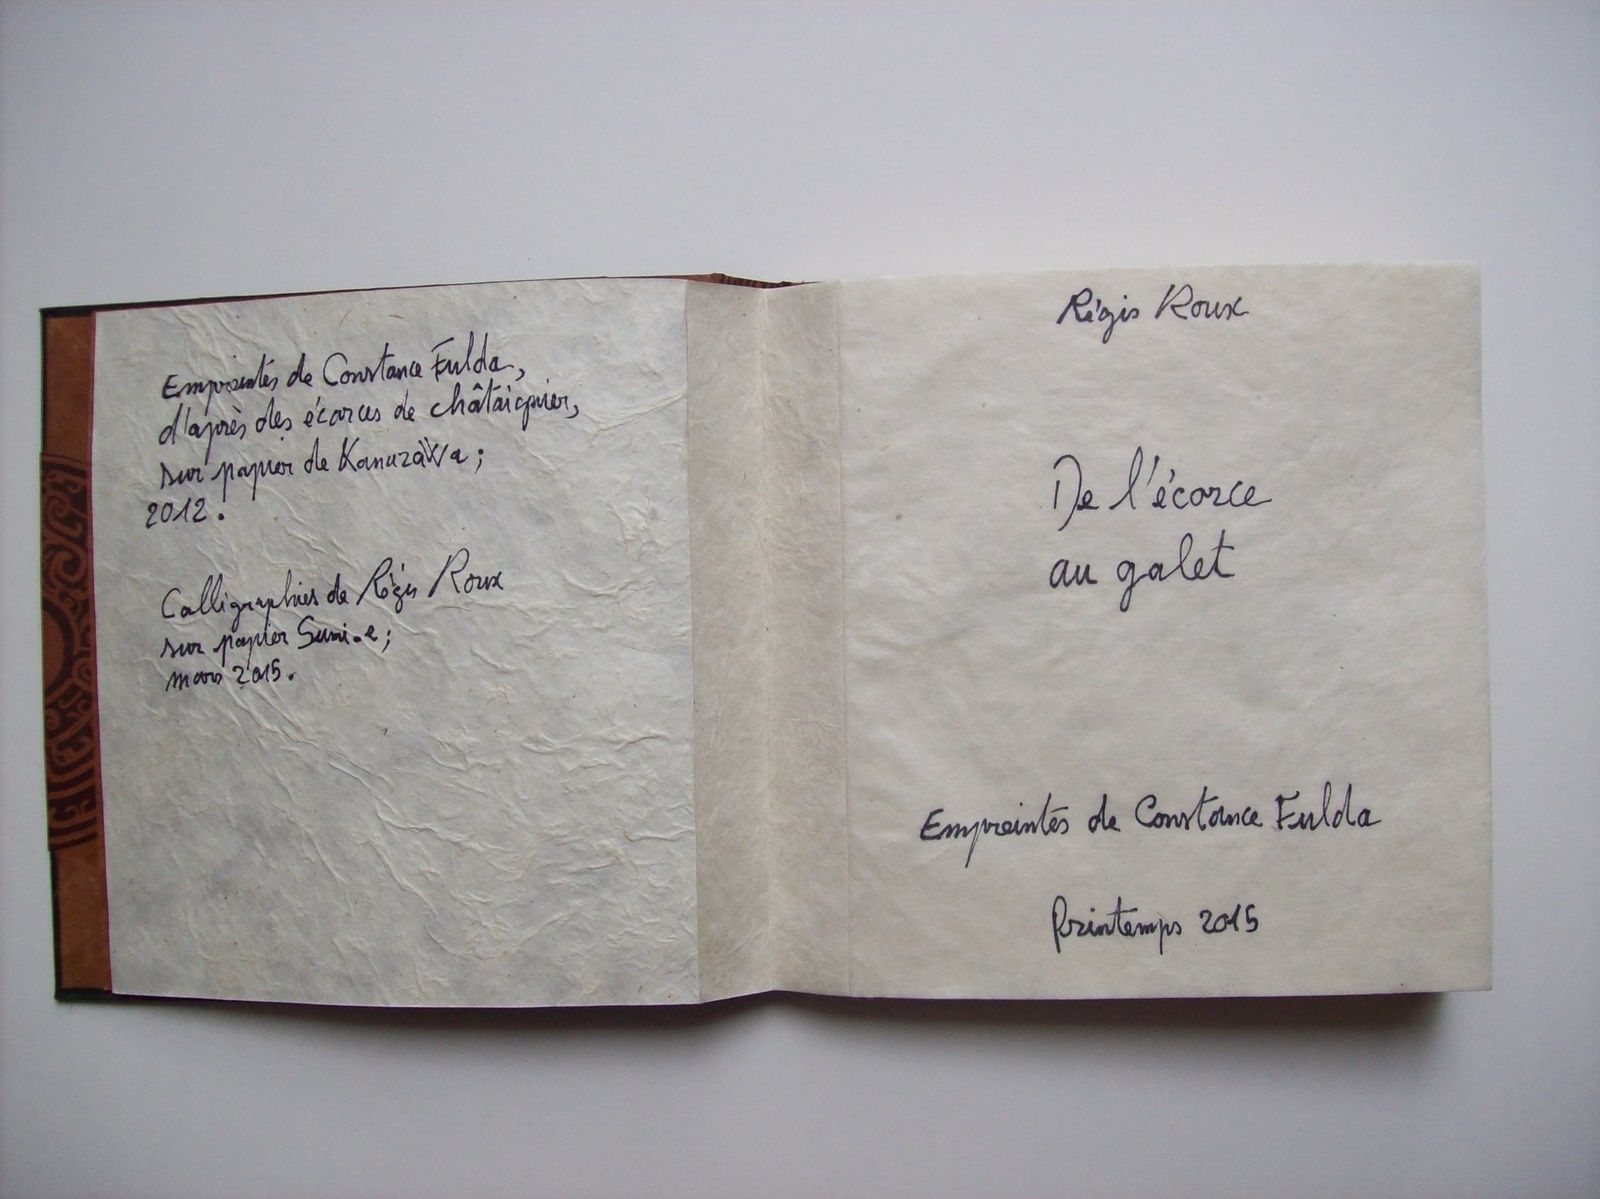 Empreintes de Constance Fulda,
d'après des écorces de châtaignier,
sur papier de Kanazawa ;
2012.
Calligraphies de Régis Roux
sur papier Sumi-e ;
mars 2015.
Régis Roux
De l'écorce
au galet
Empreintes de Constance Fulda
Printemps 2015